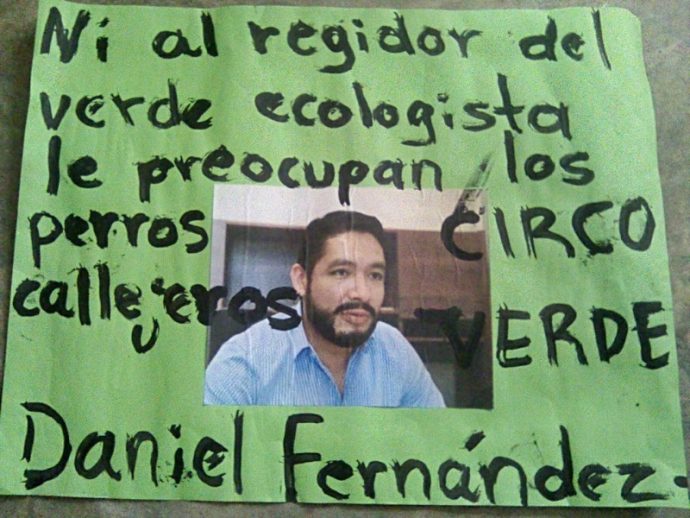 Ni al regidor del
verde ecologista
le preocupan los
perros CIRCO
callejeros VERDE
Daniel Fernández.